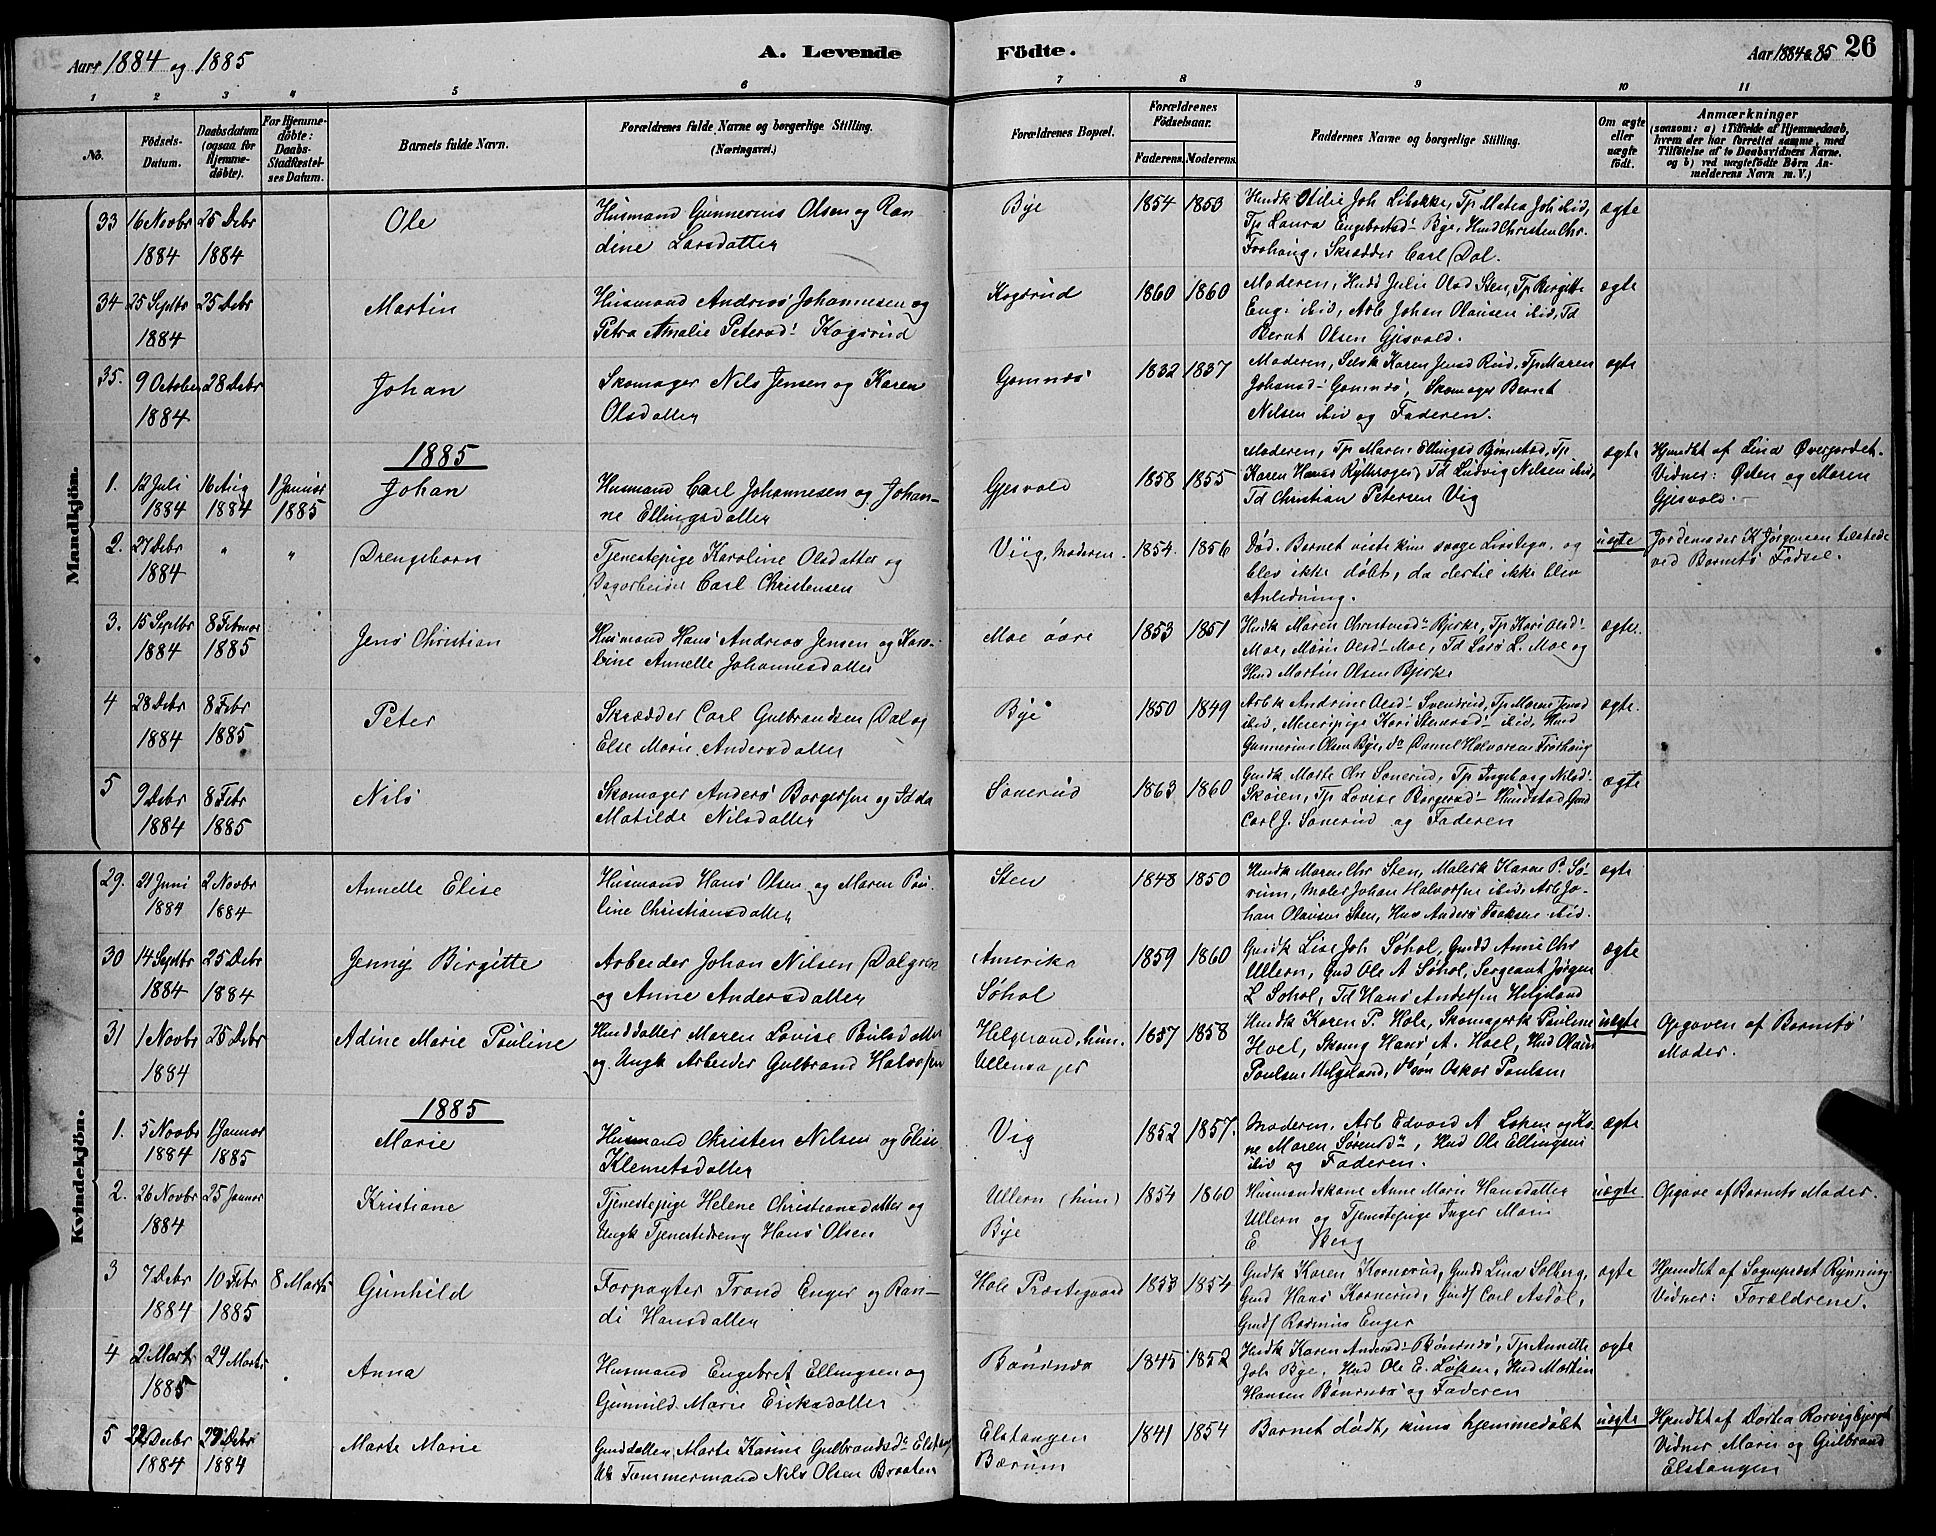 Aar 1884 og 1885
A. Levende Födte.
Aar 1884 & 85 26
1 2 3 4 5 6 7 8 9 10 11
No. Födsels-Datum. Daabsdatum (ogsaa for Hjemme-döbte). For Hjemme-döbte: Daabs-Stadfæstel-ses Datum. Barnets fulde Navn. Forældrenes fulde Navne og borgerlige Stilling. (Næringsvei.) Forældrenes Bopæl. Forældrenes Födselsaar. Faderens. Moderens. Faddernes Navne og borgerlige Stilling. Om ægte eller uægte födt. Anmærkninger (saasom: a) i Tilfælde af Hjemmedaab, hvem der har forrettet samme, med Tilföielse af to Daabsvidners Navne, og b) ved uægtefödte Börn Anmelderens Navn m. V.)
Mandkjön.
33 16 Novbr 1884 25 Debr 1884 Ole
Husmand Gunnerius Olsen og Ran
dine Larsdatter
Bye 1854 1853
Husmk Otilie Joh Libakke, Tp Matea Joh ibid,
Tp Laura Engebretsd. Bye, Husmd Christen Chr.
Frohaug, Skrædder Carl Dal.
ægte
34 25 Septbr 1884 25 Debr Martin
Husmand Andreas Johannesen og
Petra Amalie Petersd. Kogsrud
Kogsrud 1860 1860
Moderen, Husd Julie Olsd Sten, Tp Birgitte
Eng. ibid, Arb Johan Olausen ibid, Td
Bernt Olsen Gjesvold.
ægte
35. 9 October 1884 28 Debr Johan
Skomager Nils Jensen og Karen
Olsdatter
Gomnæs 1832 1837
Moderen, Selsk Karen Jensd Rud, Tp Maren
Johansd. Gomnæs, Skomager Bernt
Nilsen ibid og Faderen.
ægte
1885
1. 12 Juli 1884 16 Aug 1884 1 Januar 1885 Johan
Husmand Carl Johannesen og Johan-
ne Ellingsdatter
Gjesvold 1858 1855
Moderen, Tp Maren Ellingsd Bjørnstad, Tp
Karen Hansd Rytterager, Td Ludvig Nilsen ibid,
Td Christian Petersen Vig
ægte
Hjmdbt af Lina Øvergordet.
Vidner: Østen og Maren
Gjesvold.
2. 27 Debr 1884 " " Drengebarn
Tjenestepige Karoline Olsdatter og
Dagarbeider Carl Christensen
Viig, Moderen. 1854. 1856
Død. Barnet viste kun svage Livstegn, og
blev ikke døbt, da dertil ikke blev
Anledning.
uægte
Jordemoder K Jørgensen tilstede
ved Barnets Fødsel.
3. 15 Septbr 1884 8 Februar 1885 Jens Christian
Husmand Hans Andreas Jensen og Karo-
line Annette Johannesdatter
Moe øvre 1853 1851
Husmk Maren Christensd Bjerke, Tp Kari Olsd.
Moe, Marie Olsd. Moe, Td Lars L. Moe og
Husd Martin Olsen Bjerke
ægte.
4 28 Debr 1884 8 Febr 1885 Peter
Skrædder Carl Gulbrandsen Dal og
Else Marie Andersdatter
Bye 1850 1849
Arbk Andrine Olsd. Svendsrud, Tp Maren Jensd
ibid, Meieripige Kari Stensrud ibid, Husd
Gunnerius Olsen Bye, do Daniel Halvorsen Frøhaug
ægte.
5 9 Debr 1884 8 Febr 1885 Nils
Skomager Anders Borgersen og Idda
Matilde Nilsdatter
Sonerud 1863 1860
Gmdk Marte Chr Sonerud, Tp Ingeborg Nilsd.
Skøien, Tp Lovise Borgersd. Hundstad, Gmd
Carl J. Sonerud og Faderen
ægte
Kvindekjön.
29. 21 Juni 1884 2 Novbr 1884 Annette Elise
Husmand Hans Olsen og Maren Pau-
line Christiansdatter
Sten 1848 1850
Husmk Maren Chr Sten, Malerk Karen P. Sø-
rum, Maler Johan Halvorsen ibid, Arb Jo-
han Olausen Sten, Husm Anders Isaksen ibid.
ægte
30 14 Septbr 1884 25 Debr 1884 Jenny Birgitte
Arbeider Johan Nilsen Dalgren
og Anne Andersdatter
Amerika
Søhol
1859 1860
Gmdk Lise Joh Søhol, Gmdd Anne Chr
Ullern, Gmd Ole A Søhol, Sergeant Jørgen
L Sohol, Td Hans Andersen Helgeland
ægte
31 1 Novbr 1884 25 Debr Adine Marie Pauline
Husmddatter Maren Lovise Paulsdatter
og Ungk Arbeider Gulbrand Halvorsen
Helgerand, hun.
Ullensager
1857 1858
Husmk Karen P. Hole, Skomagerk Pauline
Hoel, Skomg Hans A. Hoel, Husd Olaus
Paulsen Helgeland, do søn Oskar Paulsen
uægte
Opgaven af Barnets
Moder.
1885
1. 5 Novbr 1884 1 Januar 1885 Marie
Husmand Christen Nilsen og Elise
Klemetsdatter
Vig 1852 1857.
Moderen, Arb Edvard A Løken og Ko-
ne Maren Sørensd, Husd Ole Ellingsen
ibid og Faderen.
ægte
2. 26 Novbr 1884 25 Januar Kristiane
Tjenestepige Helene Christiansdatter og
Ungk Tjenestedreng Hans Olsen
Ullern (hun)
Bye
1854 1860
Husmandskone Anne Marie Hansdatter
Ullern og Tjenestepige Inger Marie
E Berg
uægte
Opgave af Barnets Moder.
3 7 Debr 1884 10 Febr 1885 8 Marts Gunhild
Forpagter Trond Enger og Ran-
di Hansdatter
Hole Præstegaard 1853 1854
Gmdk Karen Kornerud, Gmdd Lina Solberg,
Gmd Hans Kornerud, Gmds Carl Asdøl,
Gmds Rasmus Enger
ægte
Hjmdbt af Sogneprest Rynning
Vidner: Forældrene.
4 2 Mart 1885 29 Marts Anna
Husmand Engebret Ellingsen og
Gunnild Marie Eriksdatter
Bønsnæs 1845 1852
Husdk Karen Andersd. Bønsnæs, Tp Annette
Joh Bye, Husd Ole E. Løken, Husd Martin
Hansen Bønsnæs og Faderen
ægte
5 22 Debr 1884 29 Debr 1884 Marte Marie
Gmddatter Marte Karine Gulbrandsd. Elstangen
Uk Tømmermand Nils Olsen Braaten
Elstangen
Bærum
1841 1854
Barnet dødt, kuns hjemmedøbt
uægte
Hjmdbt af Dortea Rørvigbjerget
Vidner Marie og Gulbrand
Elstangen